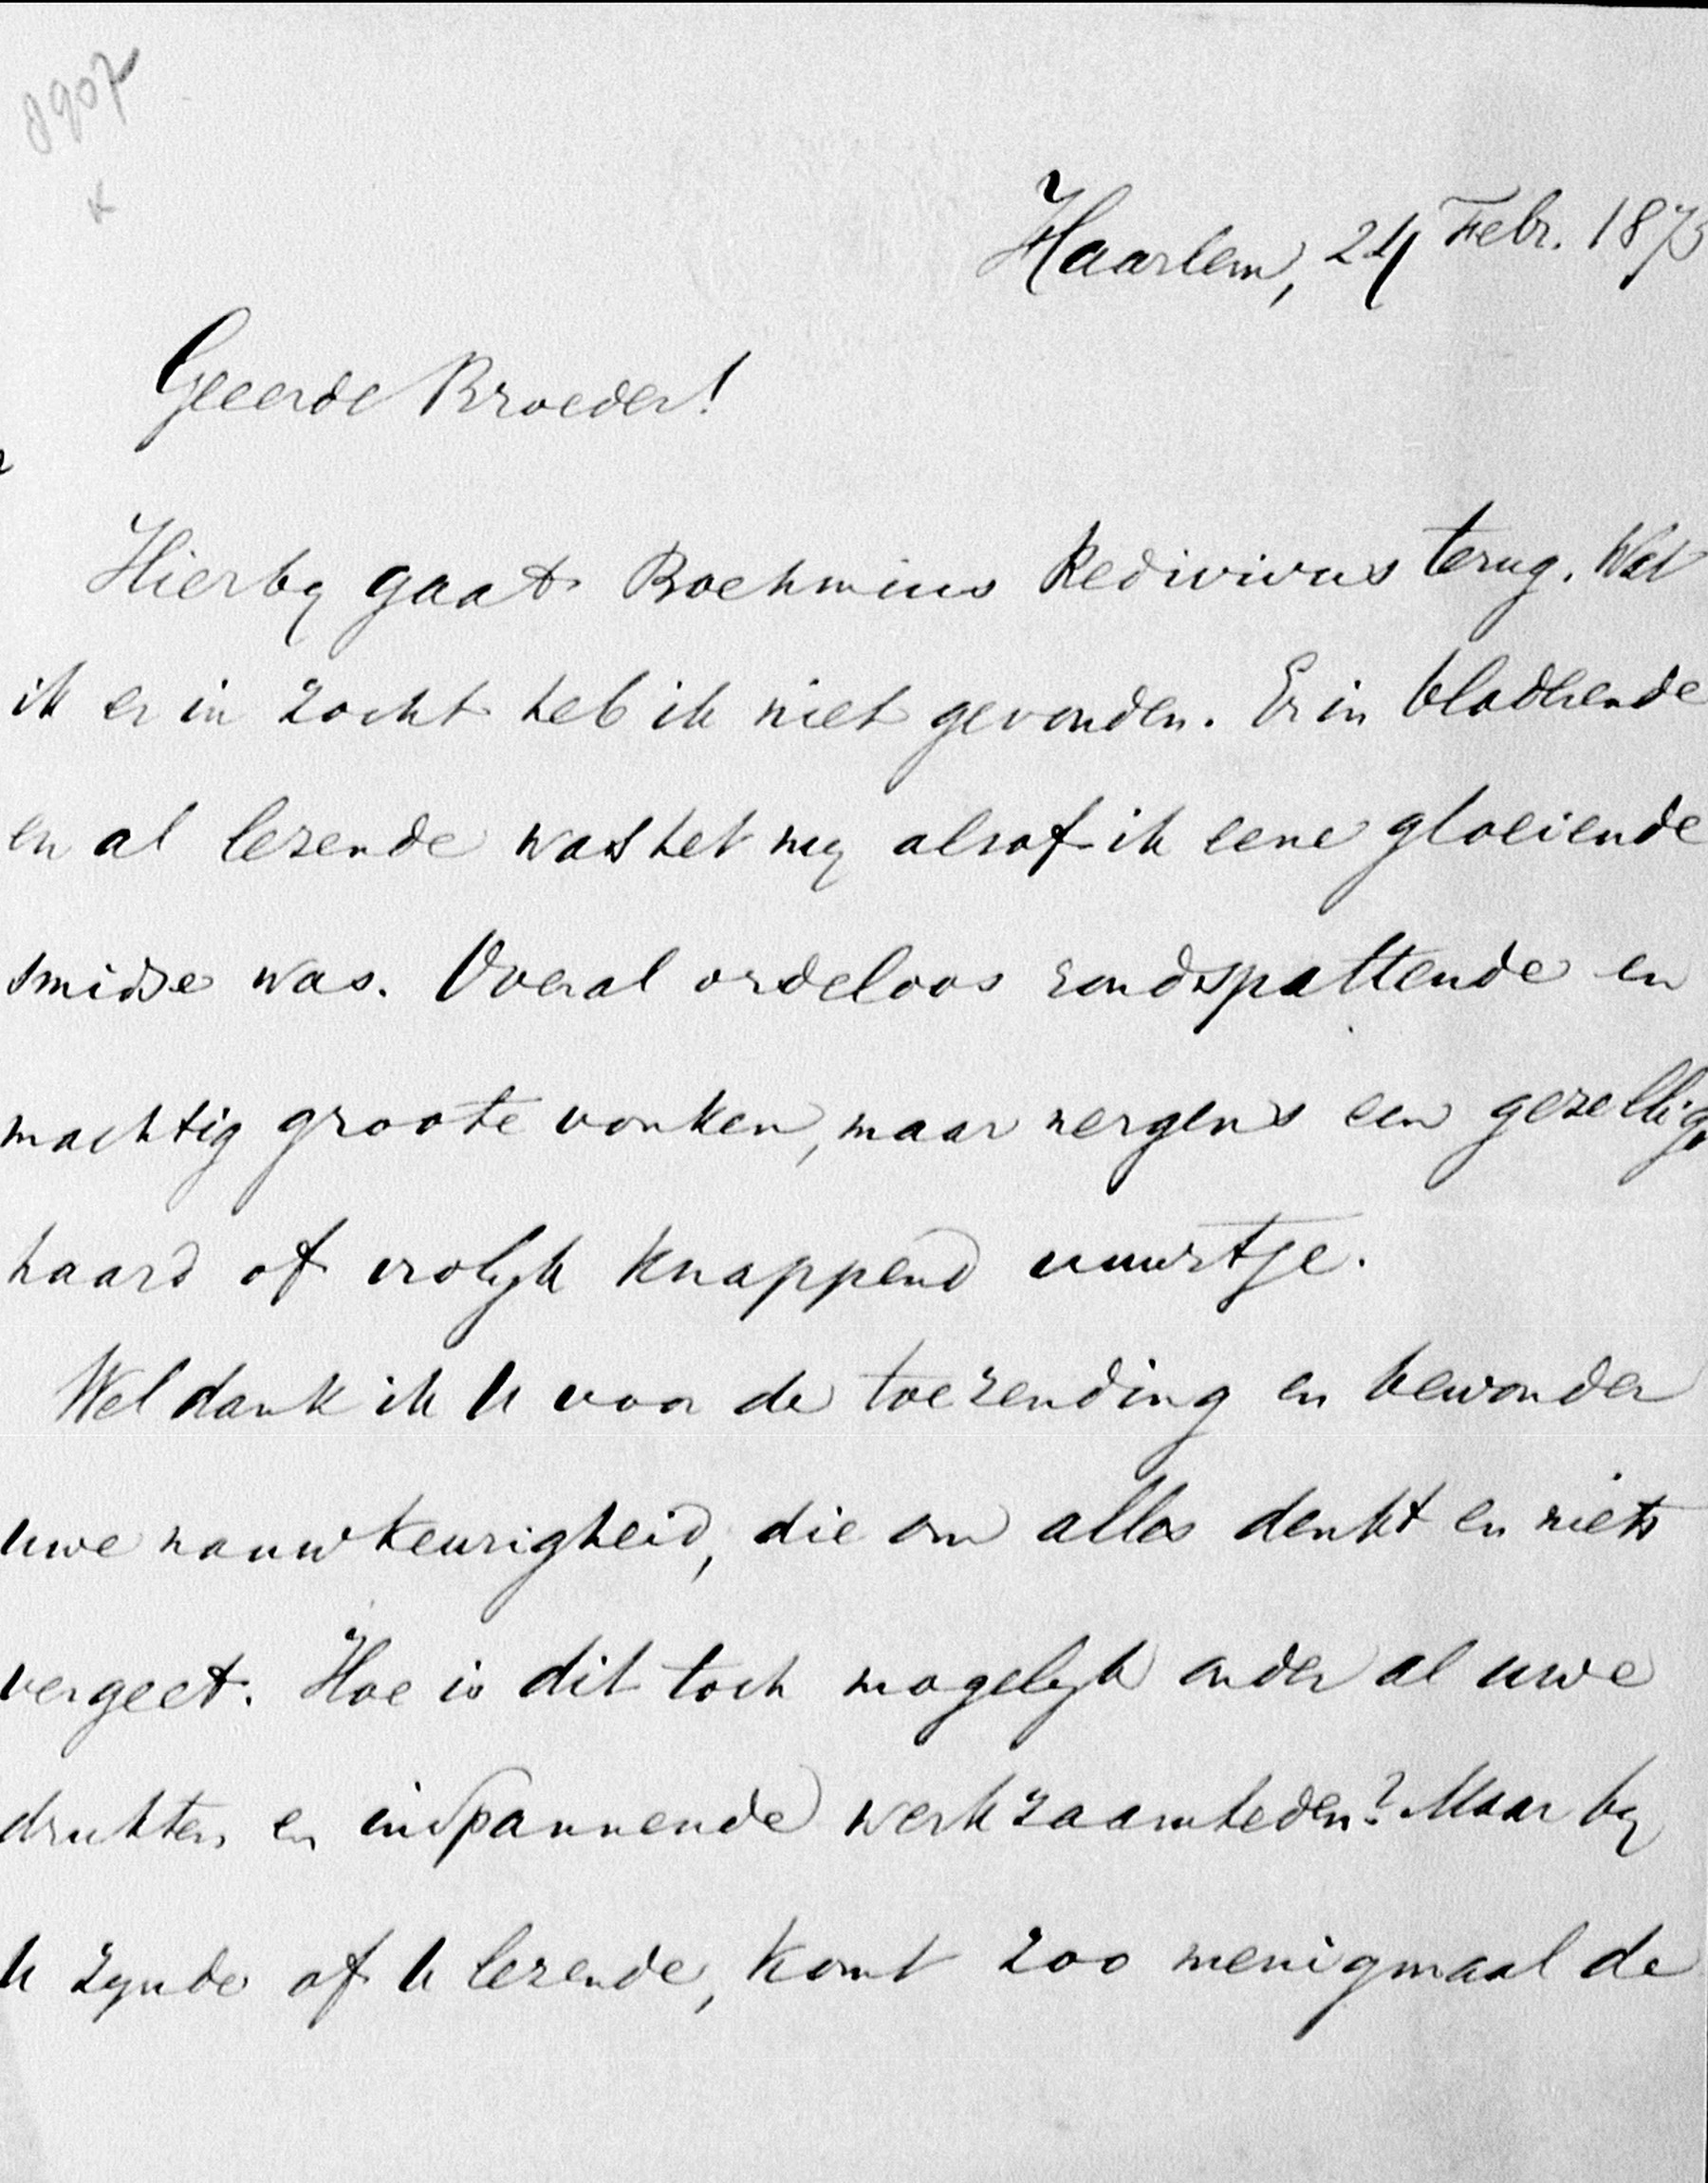 8907
K
Haarlem, 24 Febr. 1873
Geeerde Broeder!
Hierby gaat Boehmius Redivivus terug. Wat
ik er in zocht heb ik niet gevonden. Er in bladerende
en al lezende was het my alsof ik eene gloeiende
smidse was. Overal ordeloos rondspattende en
machtig groote vonken, maar nergens een gezellige
haard of vrolyk knappend vuurtje.
Wel dank ik U voor de toezending en bewonder
uwe nauwkeurigheid, die om alles denkt en niets
vergeet. Hoe is dit toch mogelyk onder al uwe
drukten en inspannende werkzaamheden? Maar by
U zynde of U lezende, komt zoo menigmaal de